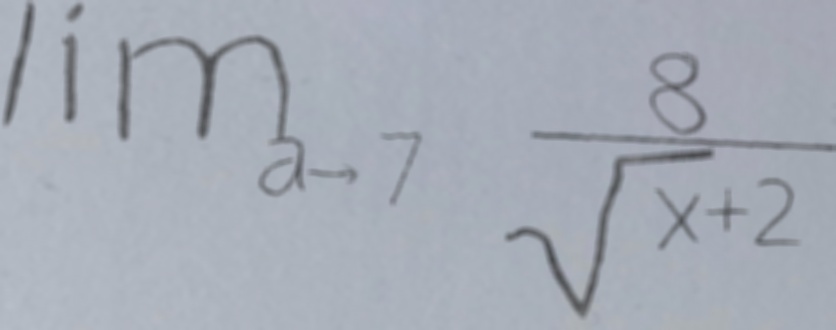 lim a→7 8/√(x+2)